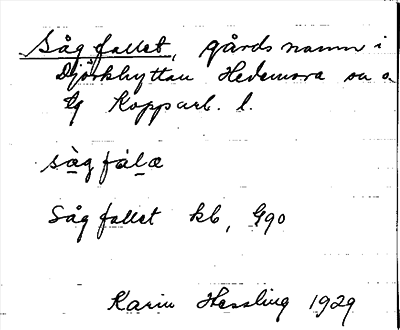 Sågfallet, gårdsnamn i
Djörkhyttan Hedemora sn o
tg Kopparb. l.
sàgfálæ
Sågfallet kb, Ggo
Karin Hessling 1929